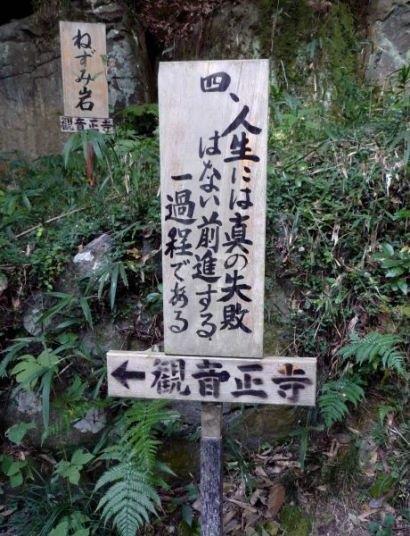 四、人生には真の失敗
はない前進する
一過程である
←観音正寺
ねずみ岩
観音正寺